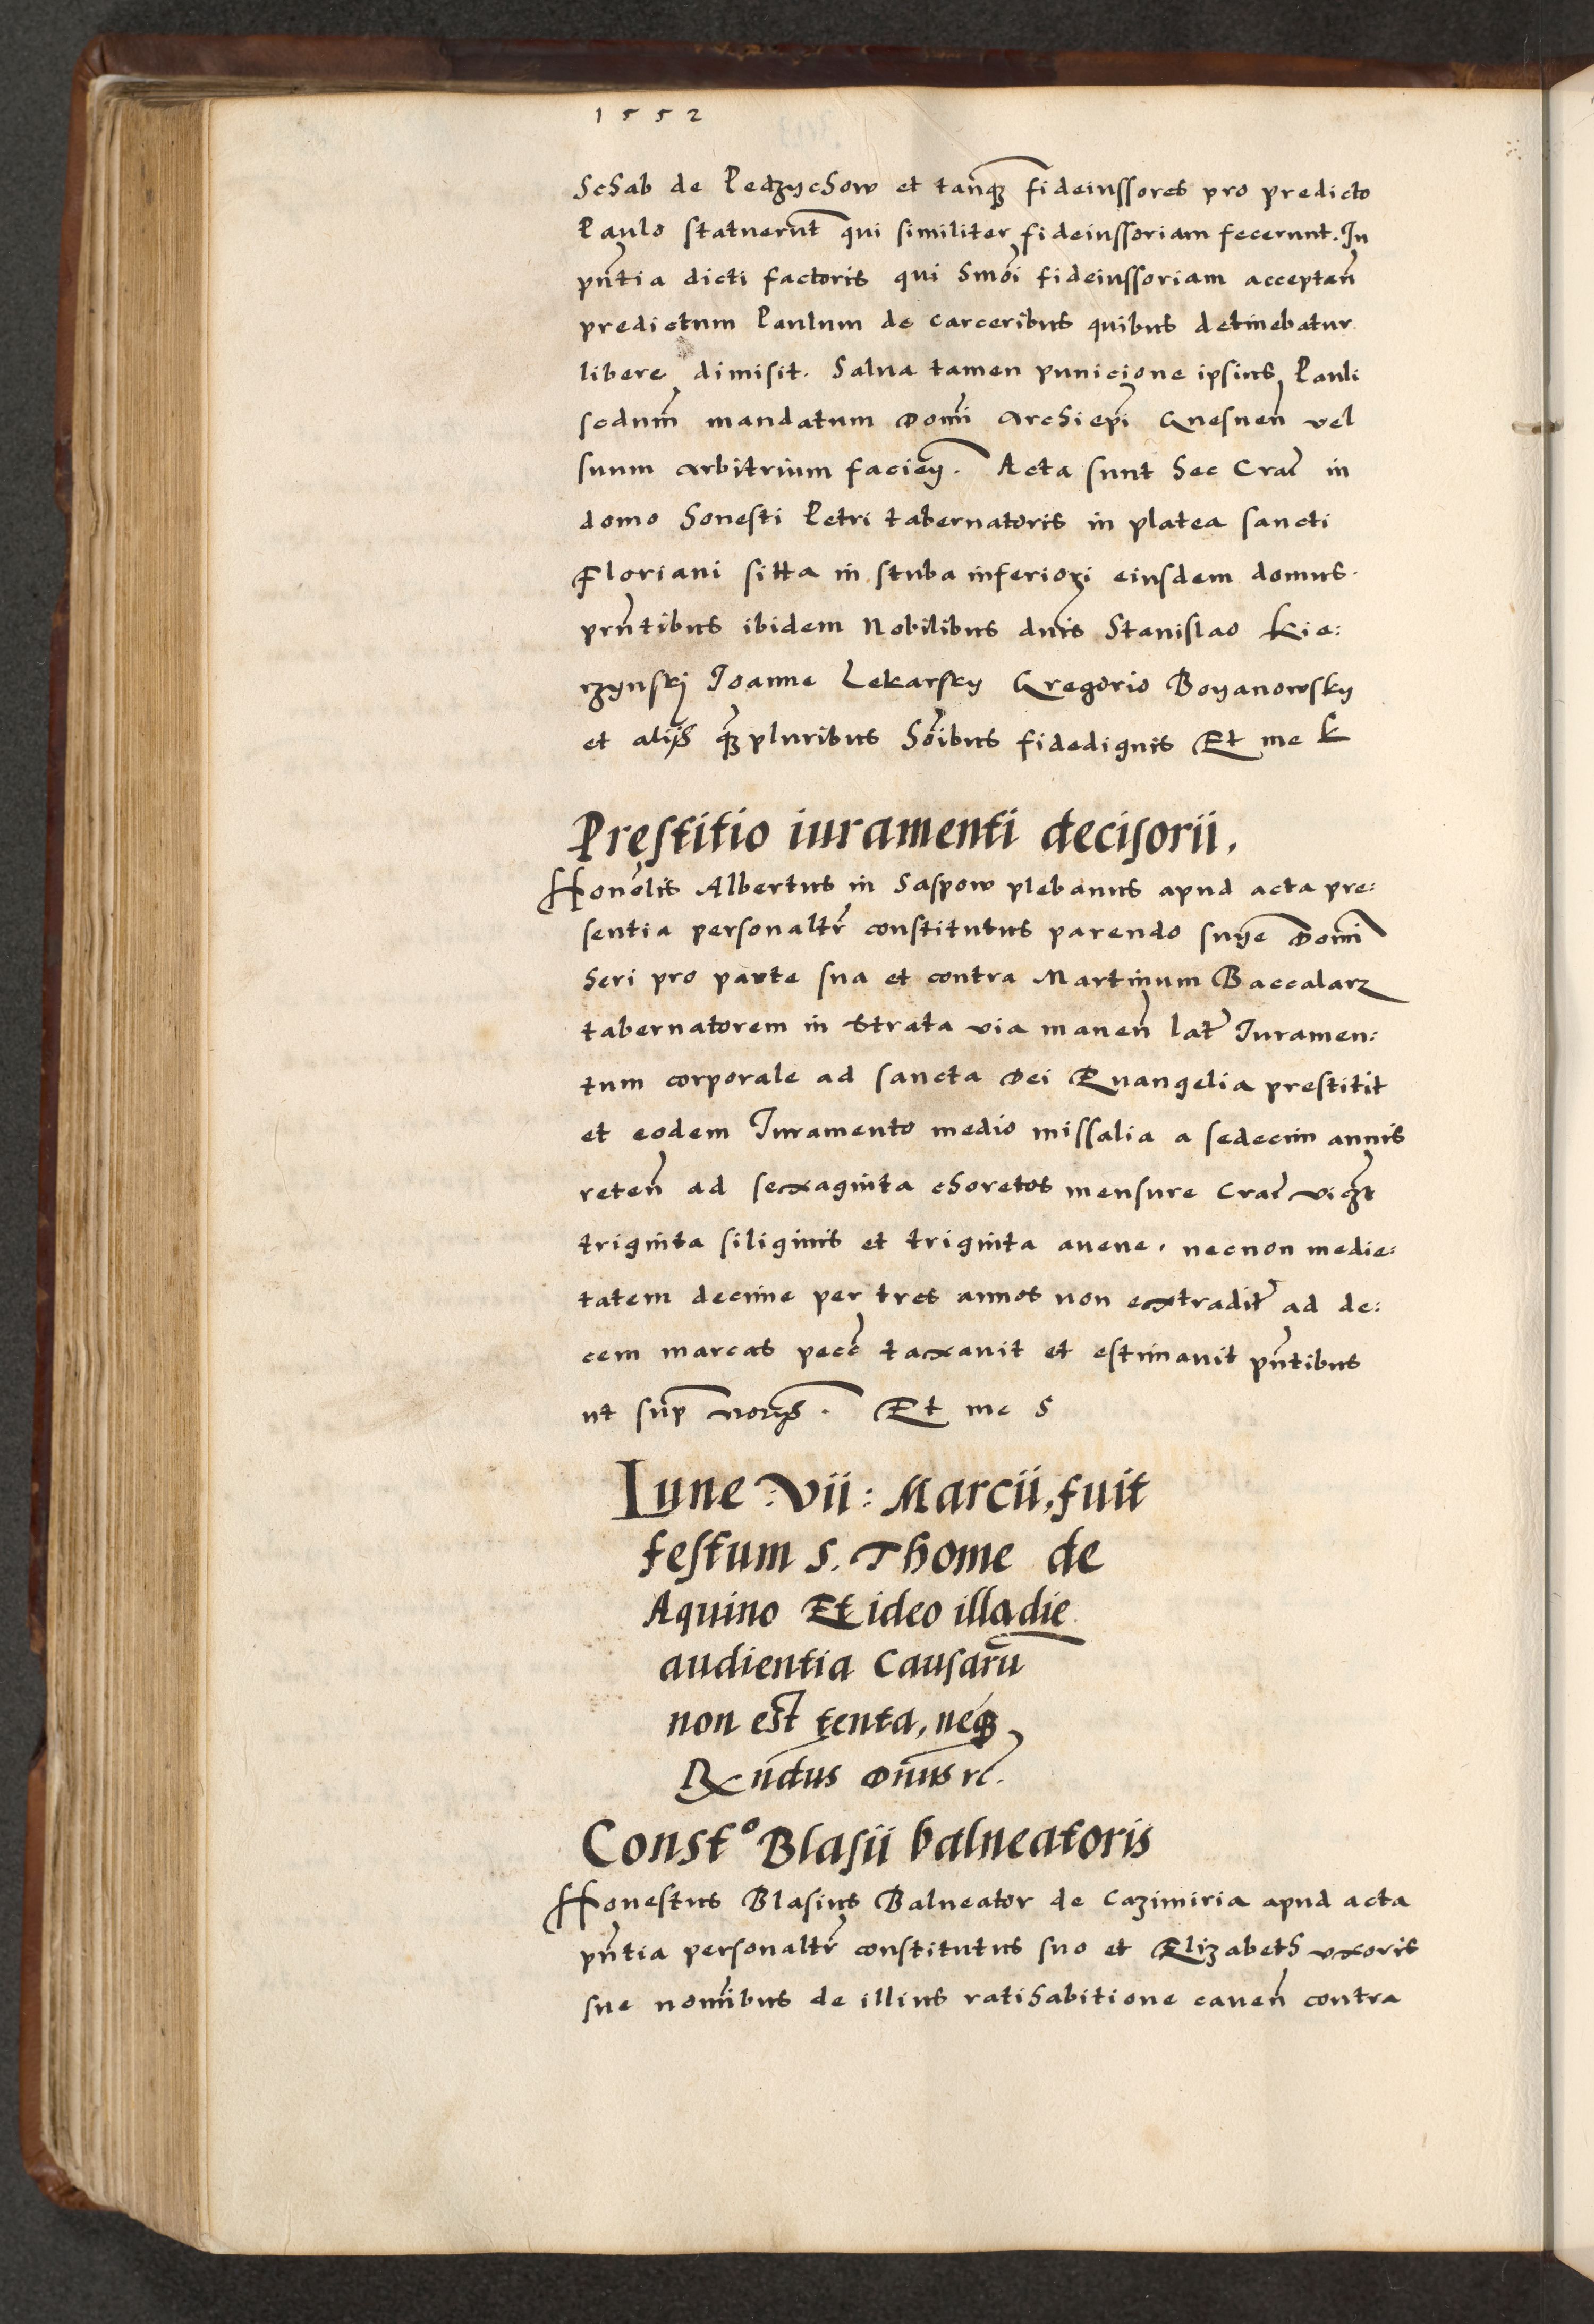 1552
Schab de Pedzychow et tanq̃ fideiussores pro predicto
Paulo statuerũt qui similiter fideiussoriam fecerunt. In
pñtia dicti factoris qui hmõi fideiussoriam acceptañ
predictum Paulum de carceribus quibus detinebatur
libere dimisit. Salua tamen punicione ipsius Pauli
scdum̃ mandatum Domĩ Archiepĩ Gnesneñ vel
suum arbitrium facieñ. Acta sunt hec Crač in
domo honesti Petri tabernatoris in platea sancti
Floriani sitta in stuba inferiori eiusdem domus.
prñtibus ibidem Nobilibus dñis Stanislao Kie:
rzynskj Joanne Lekarsky Gregorio Boyanowsky
et alijs q̃ pluribus hoĩbus fidedignis Et me K
Prestitio iuramenti decisorii.
Honor̃lis Albertus in Saspow plebanus apud acta pre:
sentia personaltr̃ constitutus parendo snỹe Domĩ
heri pro parte sua et contra Martinum Baccalarz
tabernatorem in Strata via maneñ lat̃ Juramen:
tum corporale ad sancta Dei Euangelia prestitit
et eodem Juramento medio missalia a sedecim annis
reteñ ad sexaginta choretos mensure Crač vičzt
triginta siliginis et triginta auene. necnon medie:
tatem decime per tres annos non extradit̃ ad de:
cem marcas pecc̃ taxauit et estimauit pñtibus
ut sup̃ noriis. Et me S
Lune :vii: Marcii, fuit
festum S. Thome de
Aquino Et ideo illa die
audientia causarũ
non est tenta, neq̃
Rñdus Dñus rc̃.
Const° Blasii balneatoris
Honestus Blasius Balneator de Cazimiria apud acta
pñtia personaltr̃ constitutus suo et Elizabeth uxoris
sue nomĩbus de illius ratihabitione caueñ contra